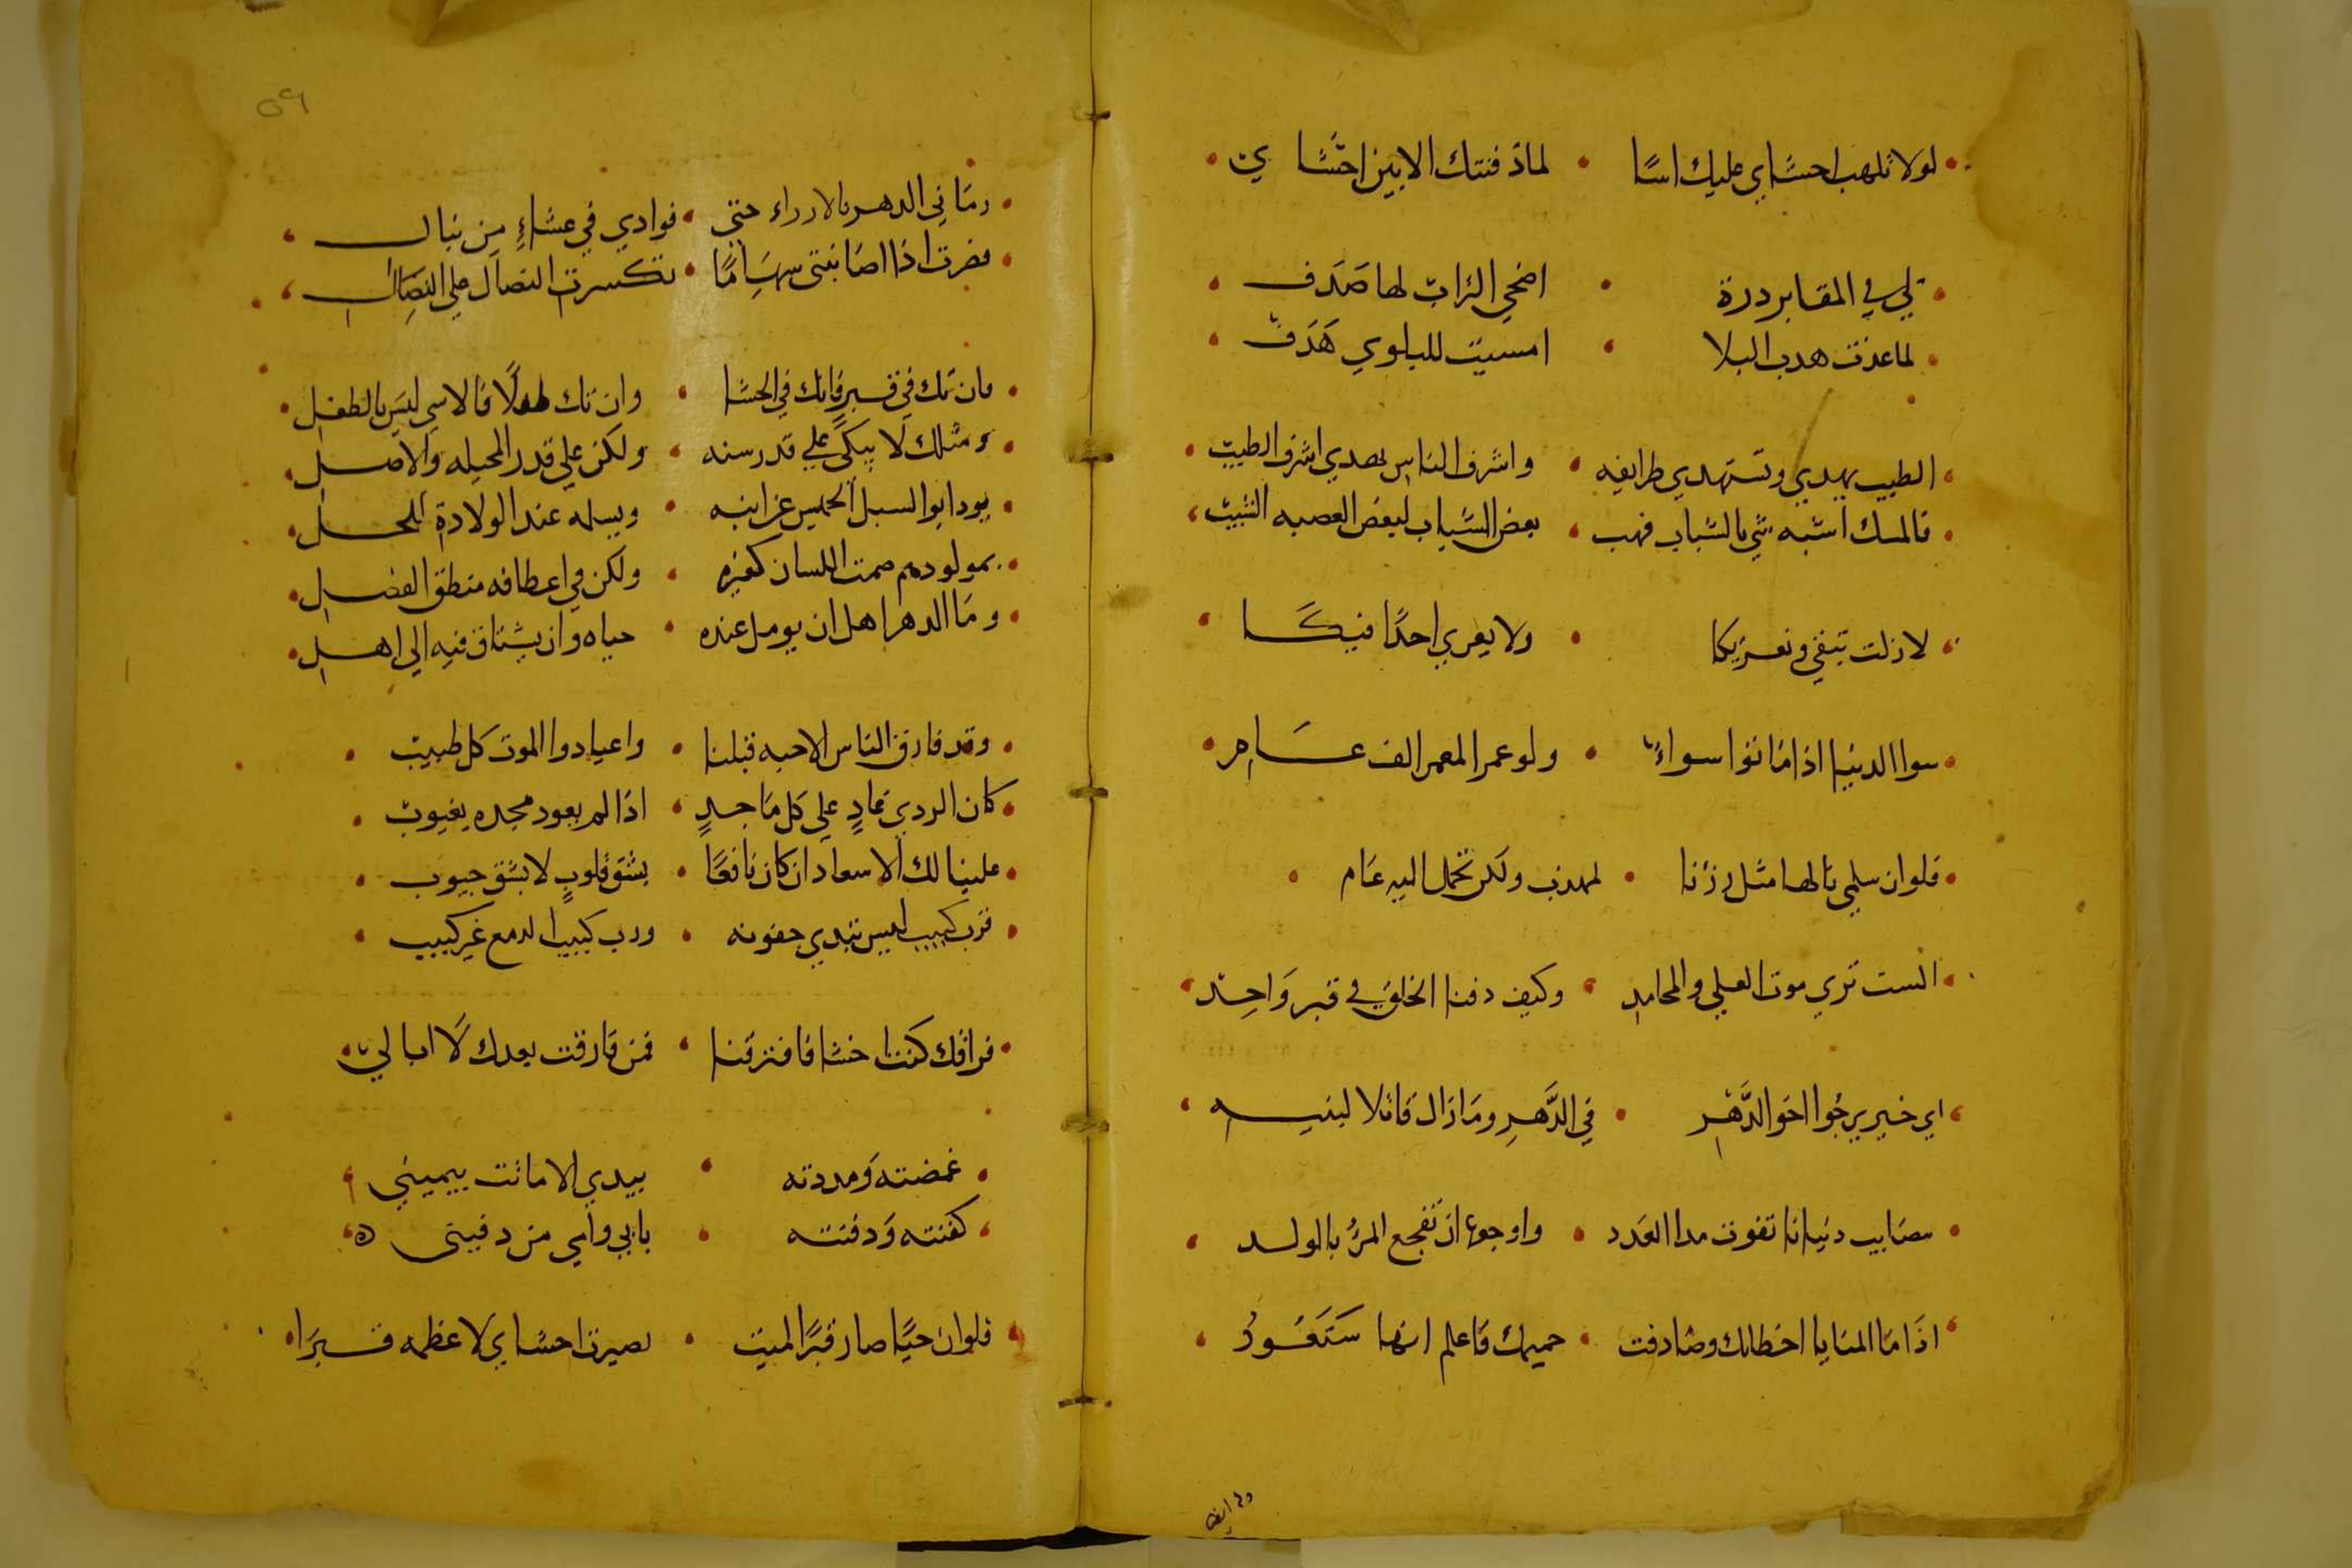 لولا تلهب احشاي عليك اسًا • لما دفنتك الا بين احشاي
لي في المقابر درة • اضحي التراب لها صَدَف
لما غدت هدب البلا • امسيت للبلوي هَدَف
الطيب يهدي وتستهدي طرايفه • واشرف الناس يهدي اشرف الطيب
فالمسك اشبه شي بالشباب فهب • بعض الشباب لبعض العصبه الشيب
لا زلت تبقي ونعزيكا • ولا يعري احدًا فيكَا
سوا الدنيا اذا ماتوا سواء • ولو عمر المعمر الف عَام
فلوان سلمي نالها مثل رزئنا • لهدت ولكن تحمل اليه عَام
الست تري موت العلي والمحامد • وكيف دفنا الخلق في قبر وَاحِد
اي خير يرجُوا اخو الدَّهْرِ • في الدَّهرِ ومَا زال قاتلا لبنيه
مصَايب دنيانا تفوت مدا العَدد • واوجعها ان تفجع المرُ بالولد
اذَا مَا المنَايا اخطاتك وصَادفت • حميمك فاعلم انها سَتَعُودُ
وله ايضا
٥٩
رمَاني الدهر بالارزاء حتى • فوادي في عشاءٍ من نبال
فصرت اذا اصَابتني سهَامًا • تكسرت النصَال علي النصَال
فان تك في قبرٍ فانك في الحشا • وان تك طفلًا فالاسي ليسَ بالطفل
ومثلك لا يبكَى علي قدر سنه • ولكن علي قدر المخيله والاصل
بمولودهم صمت اللسان كغيره • ولكن في اعطافه منطق الفضل
ومَا الدهر اهل ان يومل عنده • حياه وان يشتاق فيه الي اهل
وقد فارق الناس الاحبه قبلنا • واعيا دوا الموت كل طبيب
كان الردي عَادٍ علي كل مَاجدٍ • اذا لم يعود مجده بعيوب
علينا لك الاسعاد ان كان نافعًا • بشق قلوبٍ لا بشق جيوب
فرب كييب ليس تندي جفونه • ورب كييب الدمع غير كييب
فراقك كنت اخشا فافترقنا • فمن فارقت بعدك لَا ابالي
غمضته وَمددته • بيدي الا ماتت يميني
كفنته وَدفنته • بابي وامي من دفينى ه
فلوان حيًا صار قبرًا لميت • لصيرت احشاي لاعظمه قبرَا